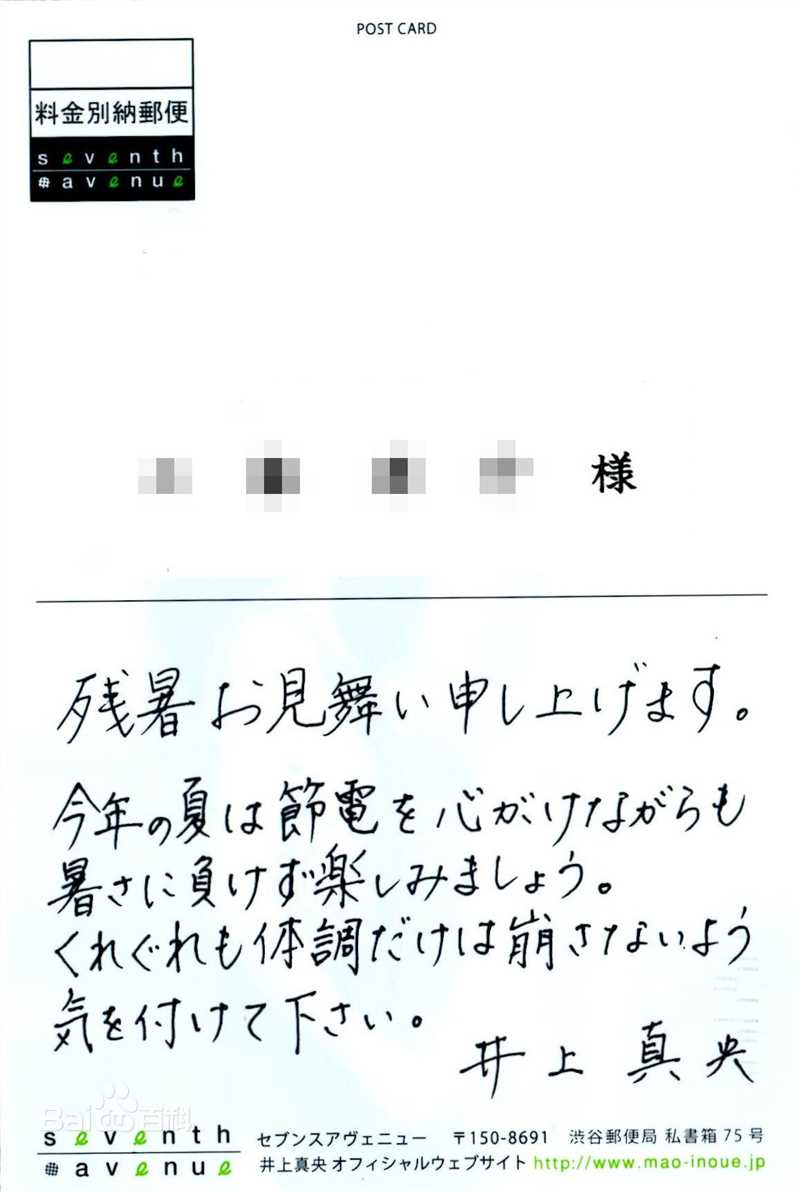 POST CARD
料金別納郵便
seventh
avenue
様
残暑お見舞い申し上げます。
今年の夏は節電を心がけながらも
暑さに負けず楽しみましょう。
くれぐれも体調だけは崩さないよう
気を付けて下さい。
井上真央
Bai百科
seventh
avenue
セブンスアヴェニュー 〒150-8691 渋谷郵便局 私書箱 75 号
井上真央 オフィシャルウェブサイト http://www.mao-inoue.jp